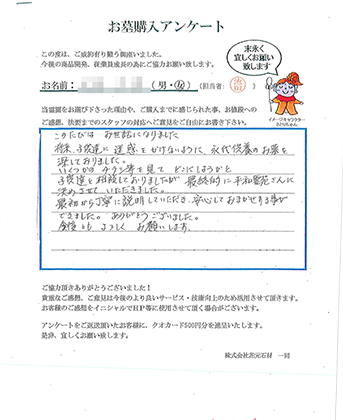 お墓購入アンケート
この度は、ご成約有り難う御座いました。
今後の商品開発、従業員成長の為にご協力お願い致します。
末永く
宜しくお願い
致します
お名前：
（男・女）
（担当者：
イメージキャラクター
当霊園をお選び下さった理由や、ご購入までに感じられた事、お値段への
ご感想、快要までのスタッフの対応へご意見をご自由にお書き下さい。
このたびは お世話になりました
将来、子供達に 迷惑をかけないように、永代供養のお墓を
探しておりました。
いくつかの チラシ等を見て どこにしようかと
子供達と相談しておりましたが 最終的に平和霊苑さんに
決めさせて いただきました。
最初から丁寧に説明していただき、安心しておまかせする事が
できました。 ありがとうございました。
今後とも よろしく お願いします。
ご協力頂きありがとうございました！
貴重なご感想、ご意見は今後のより良いサービス・技術向上のため活用させて頂きます。
お客様のご感想をイニシャルでHP等に使用させて頂く場合がございます。
アンケートをご返送頂いたお客様に、クオカード500円分を進呈いたします。
是非、宜しくお願い致します。